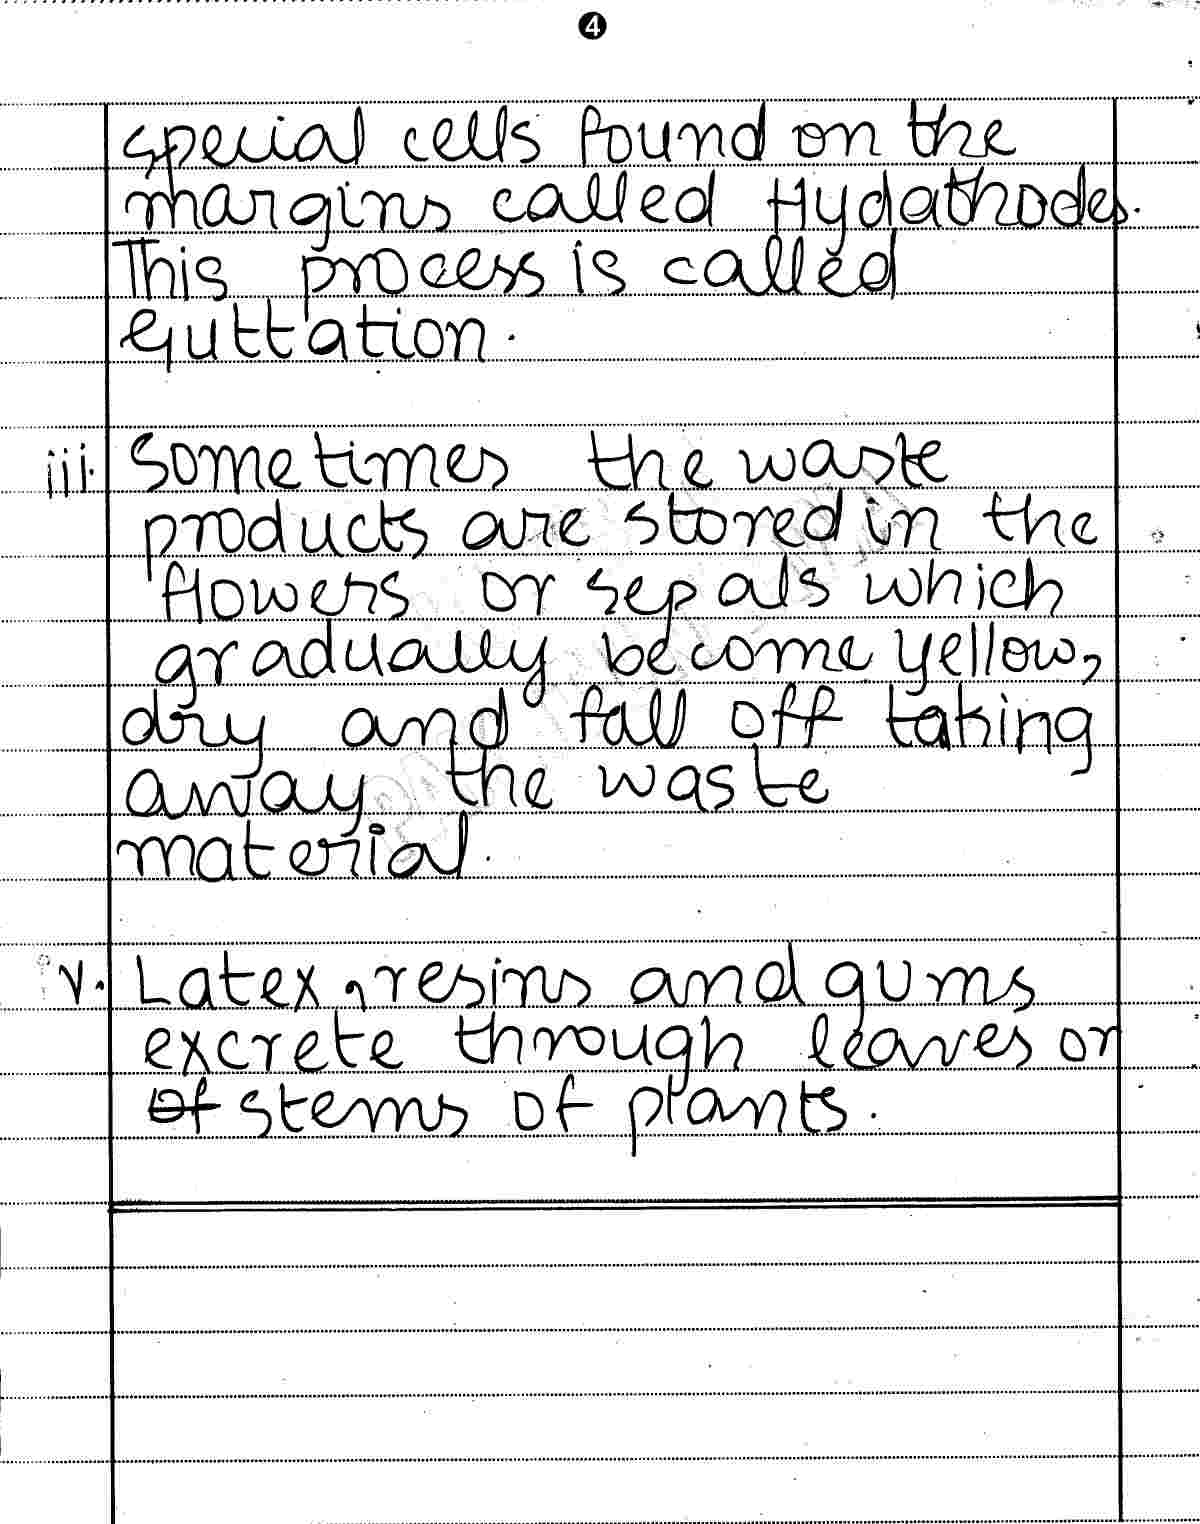 4
special cells found on the
margins called Hydathodes.
This process is called
Guttation.
iii. Sometimes the waste
products are stored in the
flowers or sepals which
gradually become yellow,
dry and fall off taking
away the waste
material.
v. Latex, resins and gums
excrete through leaves or
of stems of plants.